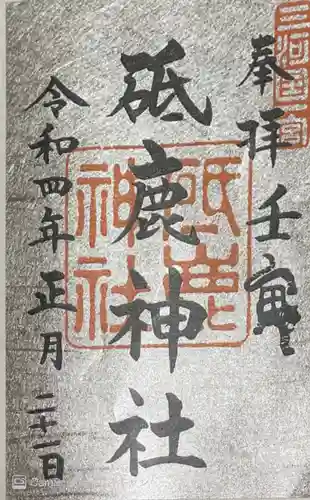 三河国一宮
奉拝 壬寅
砥鹿神社
砥鹿
神社
令和四年正月二十一日